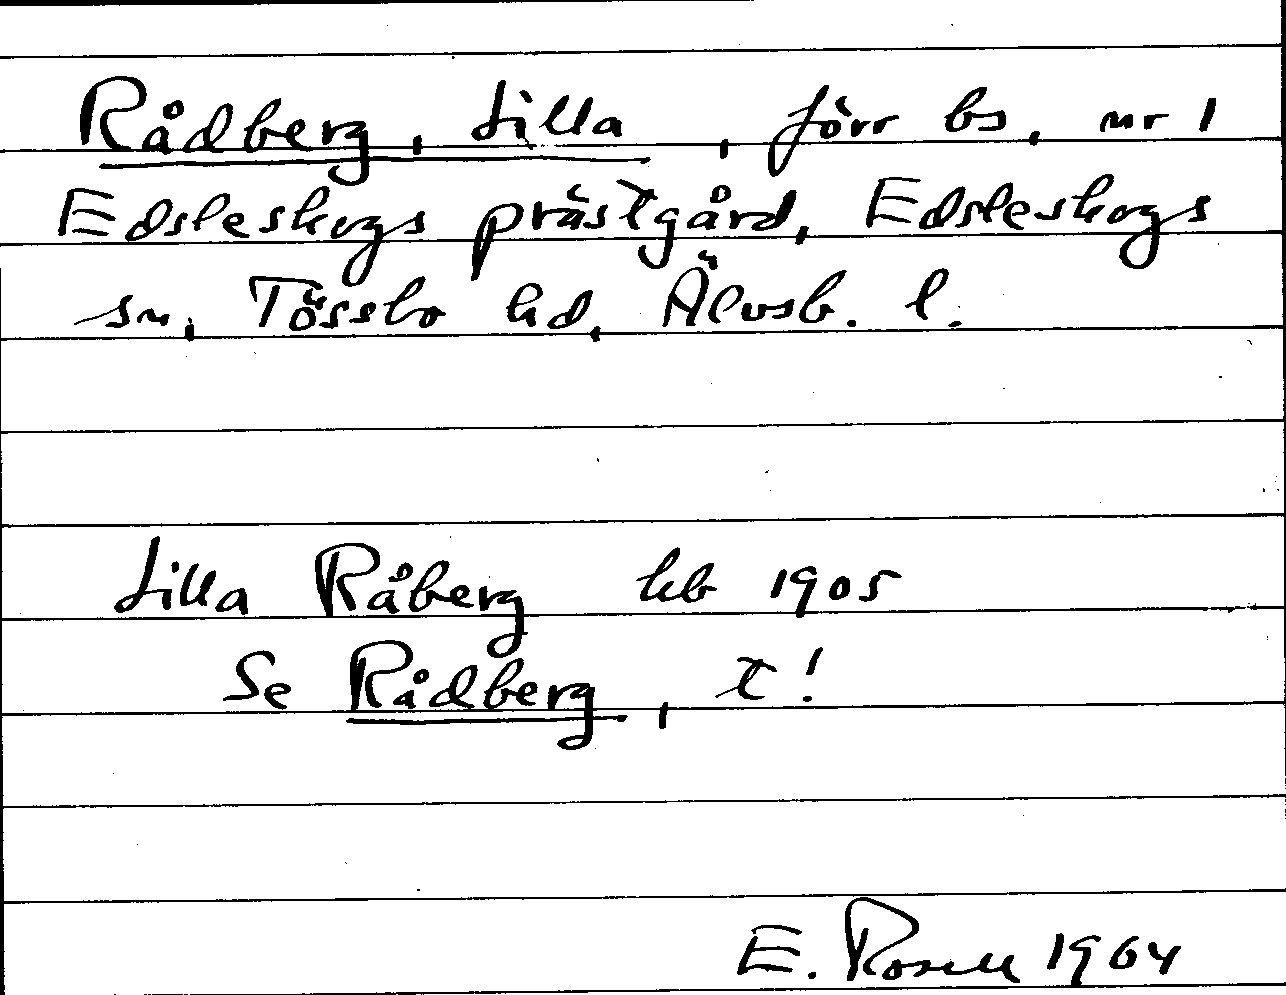 Rådberg, Lilla, förr bs, nr 1
Edsleskogs prästgård, Edsleskogs
sn, Tössbo hd, Älvsb. l.
Lilla Råberg hb 1905
Se Rådberg, t!
E. Rosell 1964